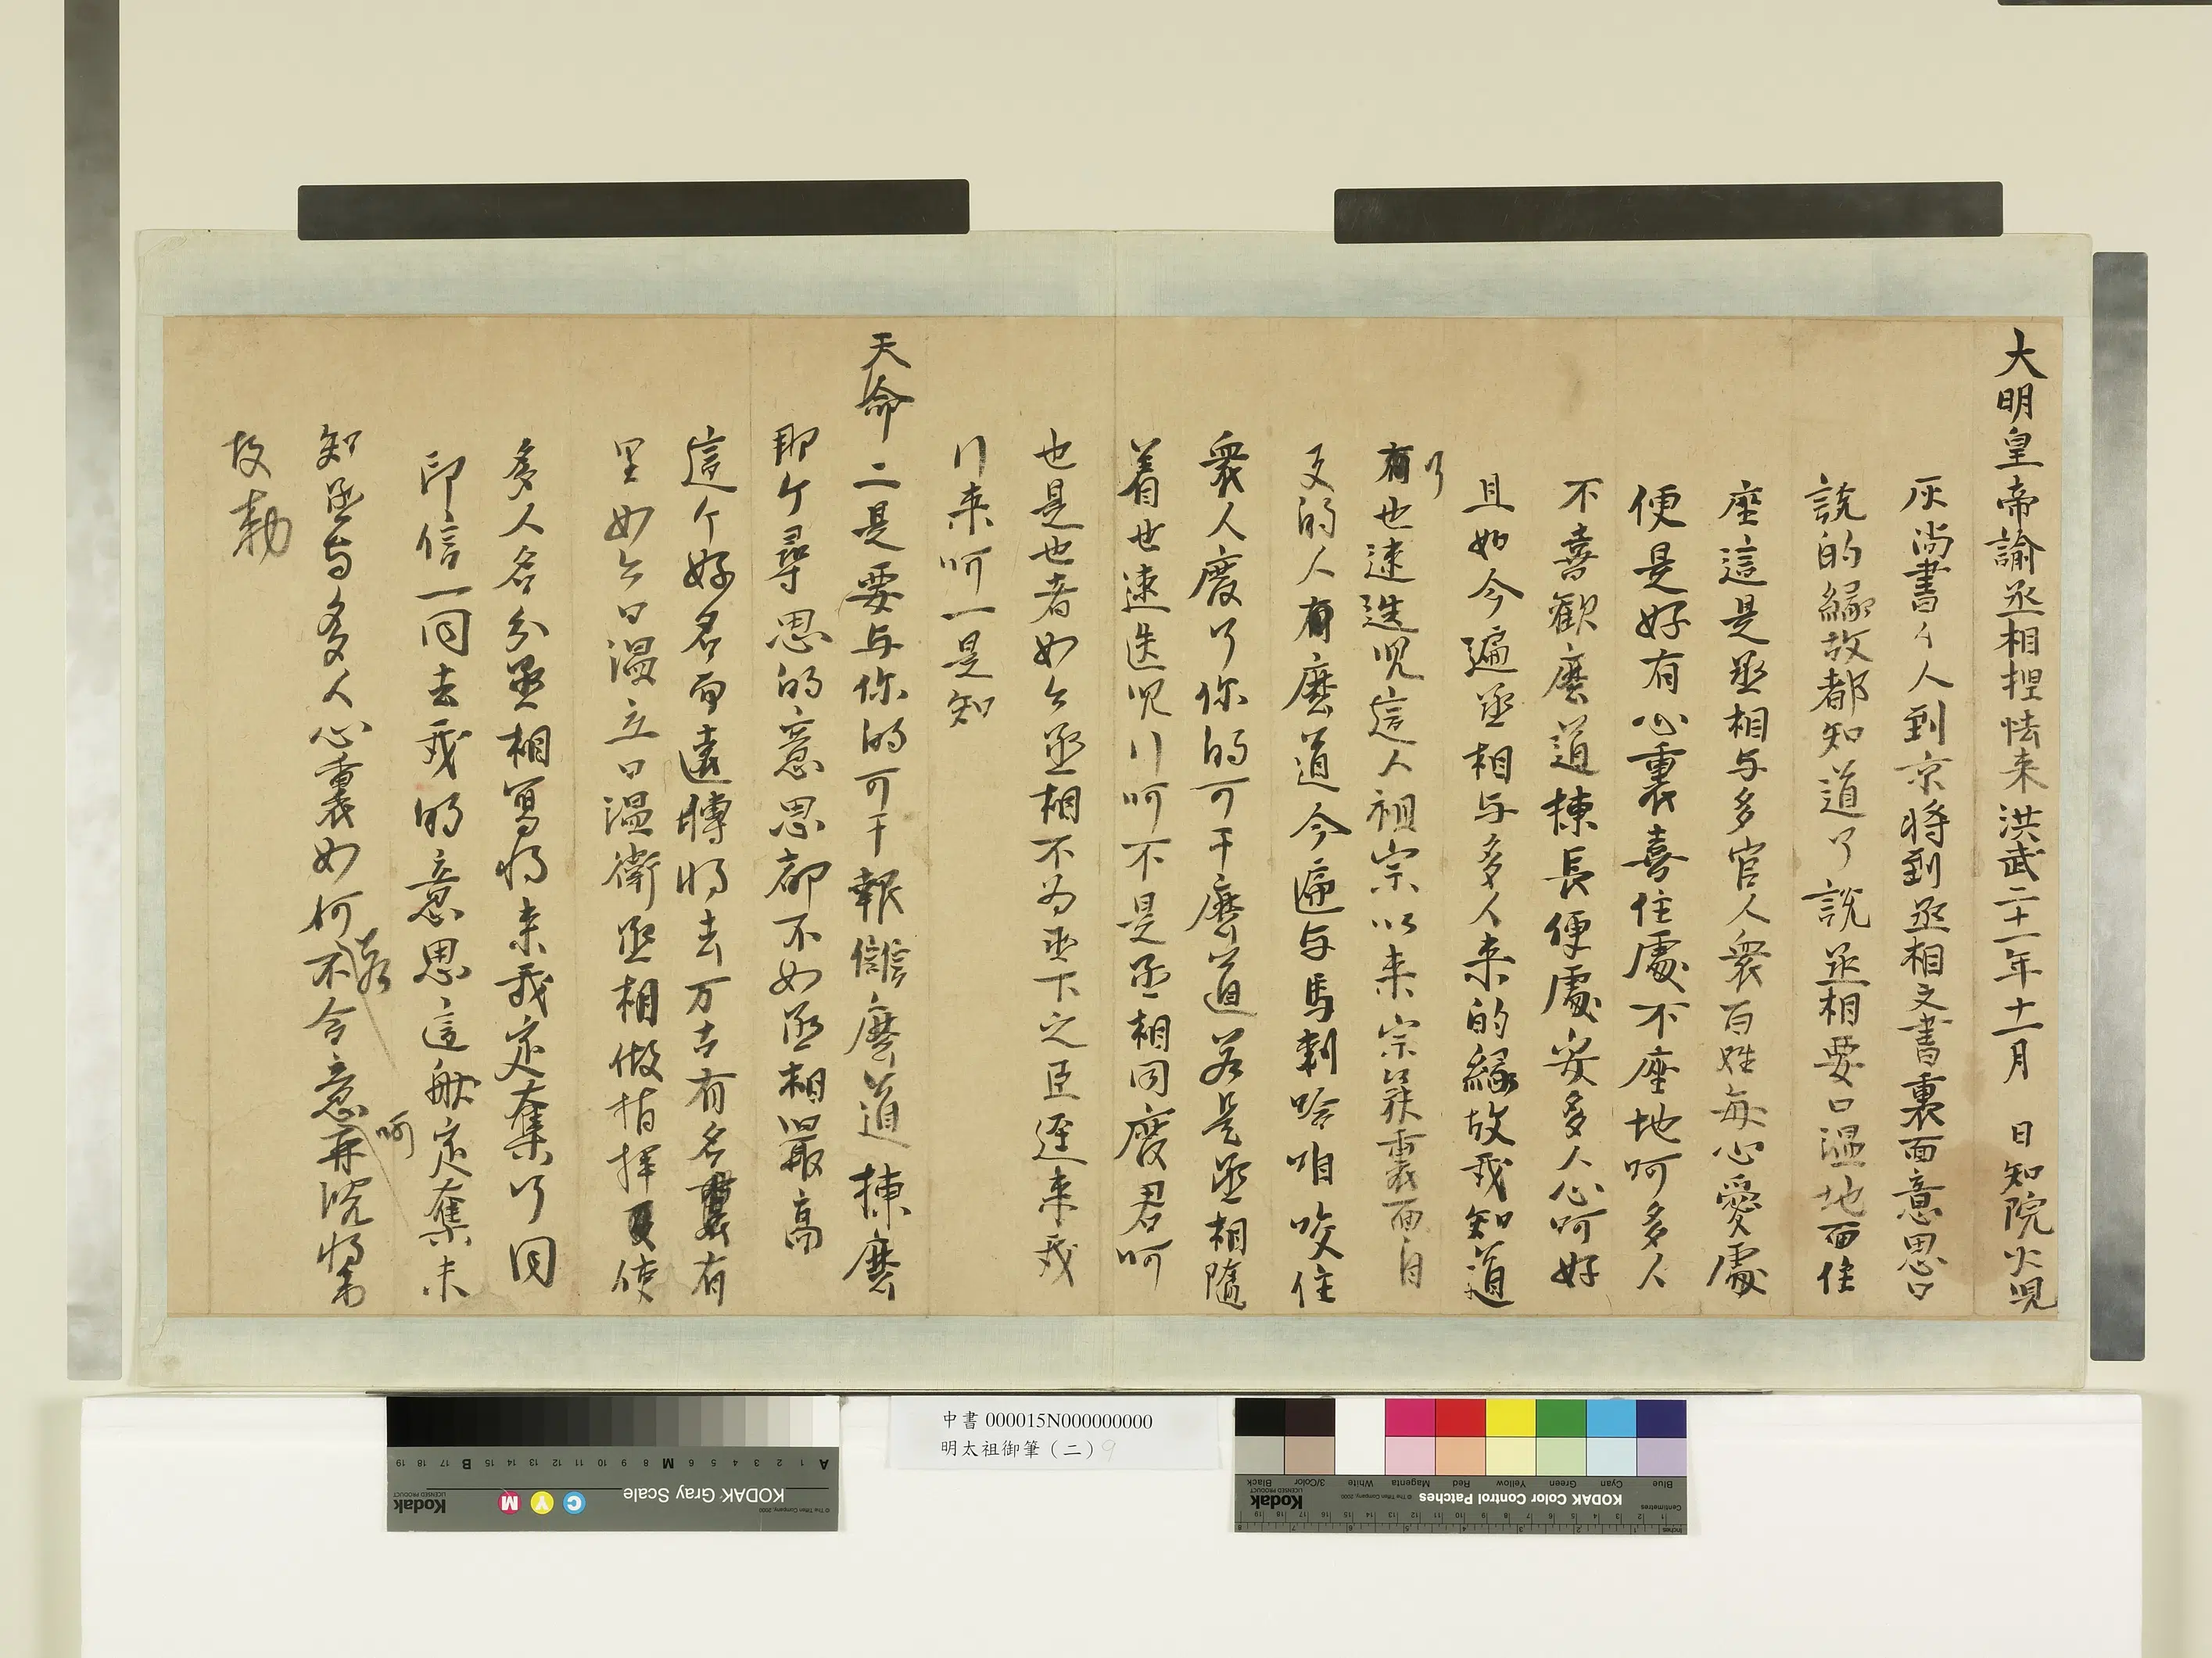 大明皇帝諭丞相捏怯来洪武二十一年十一月 日知院火児
灰尚書人到京將到丞相文書裏面意思口
說的緣故都知道了說丞相要口溫地面住
座這是丞相与多官人衆百姓每心愛處
便是好有心裏喜住處不座地呵多人
不喜歡麽道揀長便處安多人心呵好
且如今遍丞相与多人来的緣故我知道
了
有也速迭児這人祖宗以来宗裏面自
的人有麽道今遍与馬剌哈咱咬住
衆人廢了你的可干麽道若是丞相隨
着也速迭児行呵不是丞相同廢君呵
也是也者如今丞相不为丞下之臣逕来我
行来呵一是知
天命二是要与你的可干報讎麽道揀麽
那个尋思的意思都不如丞相最高
這个好名而遠將去万古有名有
里如今口溫立口溫衛丞相做指揮使
多人名分丞相寫將来我定奪了同
印信一同去我的意思這般定奪未
知丞与多人心裏如何若不合意呵再說將
故勅
中書 000015N000000000
明太祖御筆（二）9
KODAK Gray Scale
Kodak
LICENSED PRODUCT
© The Tiffen Company, 2000
C Y M
A 1 2 3 4 5 6 M 8 9 10 11 12 13 14 15 B 17 18 19
KODAK Color Control Patches
Kodak
LICENSED PRODUCT
© The Tiffen Company, 2000
Blue Cyan Green Yellow Red Magenta White 3/Color Black
Centimetres
Inches